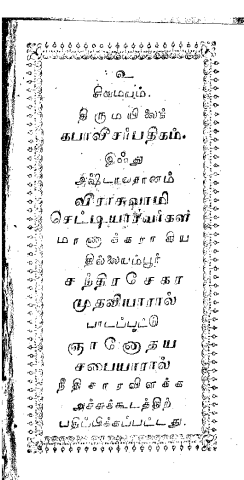 உ
சிவமயம்.
திருமயிலைக்
கபாலீசர்பதிகம்.
இஃது
அஷ்டாவதானம்
வீராசுவாமி
செட்டியாரவர்கள்
மாணாக்கராகிய
தில்லையம்பூர்
சந்திரசேகர
முதலியாரால்
பாடப்பட்டு
ஞானோதய
சபையாரால்
நீதிசாரவிளக்க
அச்சுக்கூடத்திற்
பதிப்பிக்கப்பட்டது.